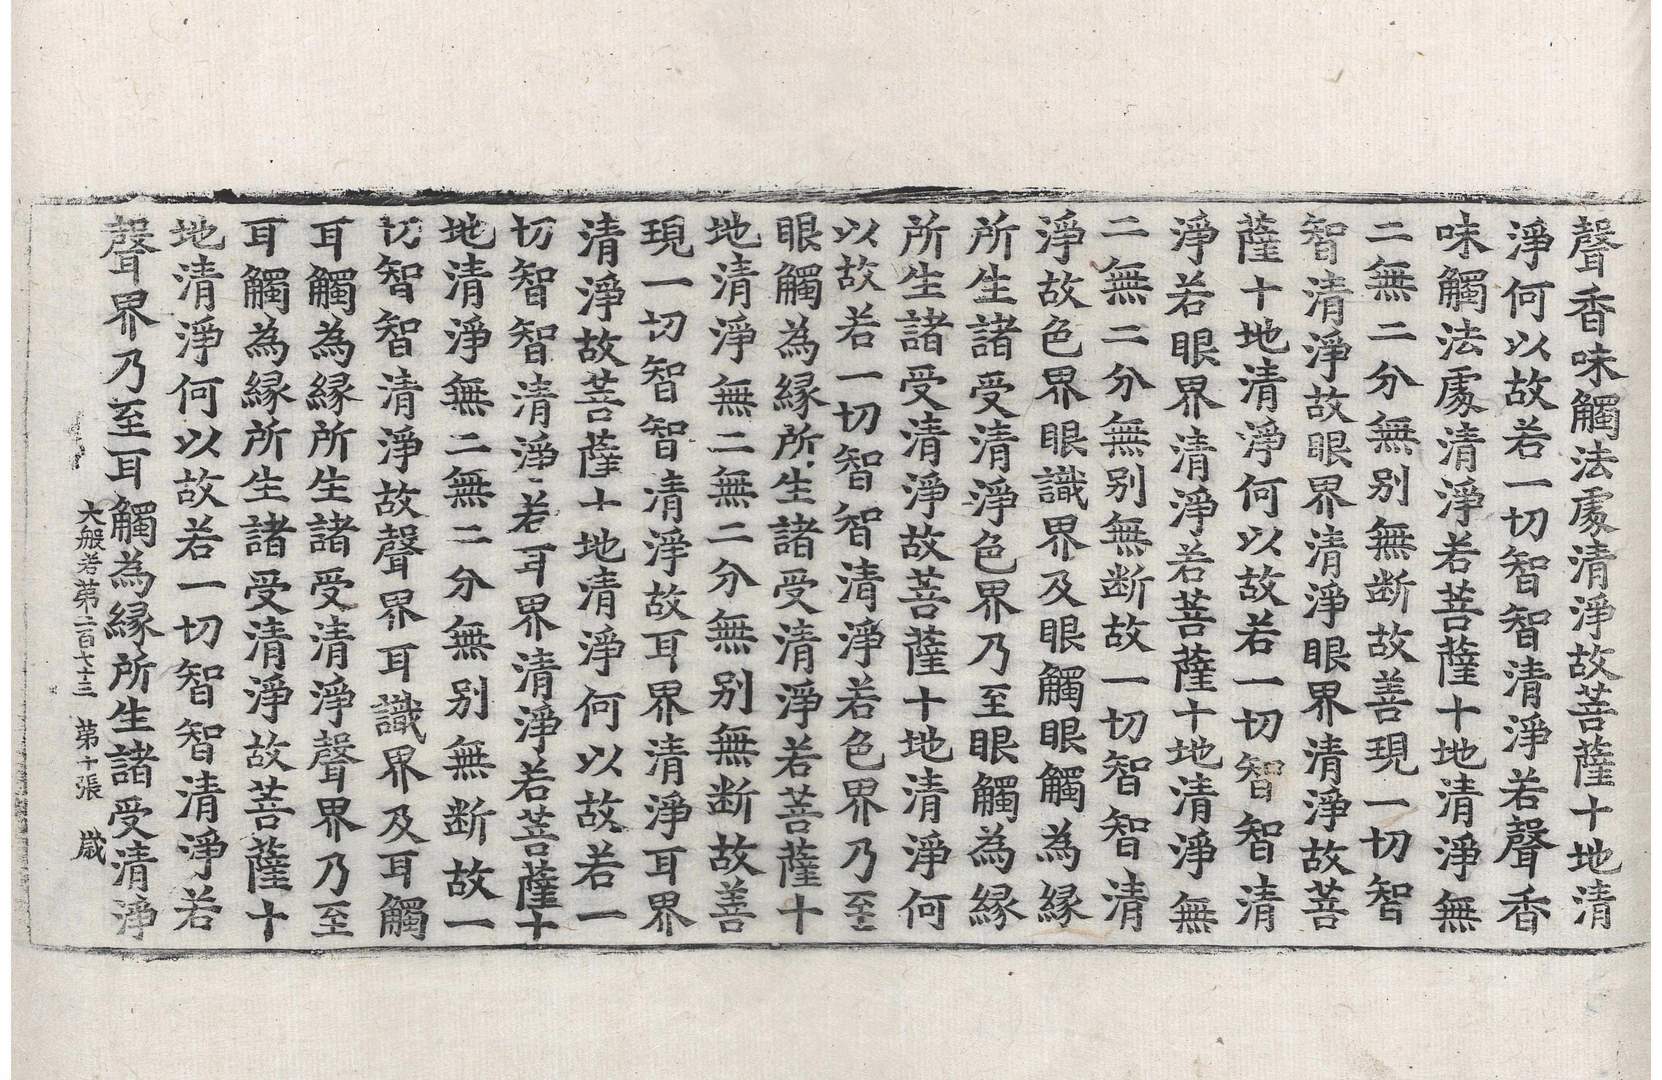 聲香味觸法處清淨故菩薩十地清
淨何以故若一切智智清淨若聲香
味觸法處清淨若菩薩十地清淨無
二無二分無别無断故善現一切智
智清淨故眼界清淨眼界清淨故菩
薩十地清淨何以故若一切智智清
淨若眼界清淨若菩薩十地清淨無
二無二分無别無断故一切智智清
淨故色界眼識界及眼觸眼觸為縁
所生諸受清淨色界乃至眼觸為縁
所生諸受清淨故菩薩十地清淨何
以故若一切智智清淨若色界乃至
眼觸為縁所生諸受清淨若菩薩十
地清淨無二無二分無别無断故善
現一切智智清淨故耳界清淨耳界
清淨故菩薩十地清淨何以故若一
切智智清淨若耳界清淨若菩薩十
地清淨無二無二分無别無断故一
切智智清淨故聲界耳識界及耳觸
耳觸為縁所生諸受清淨聲界乃至
耳觸為縁所生諸受清淨故菩薩十
地清淨何以故若一切智智清淨若
聲界乃至耳觸為縁所生諸受清淨
大般若第二百六十三 第十張 歳